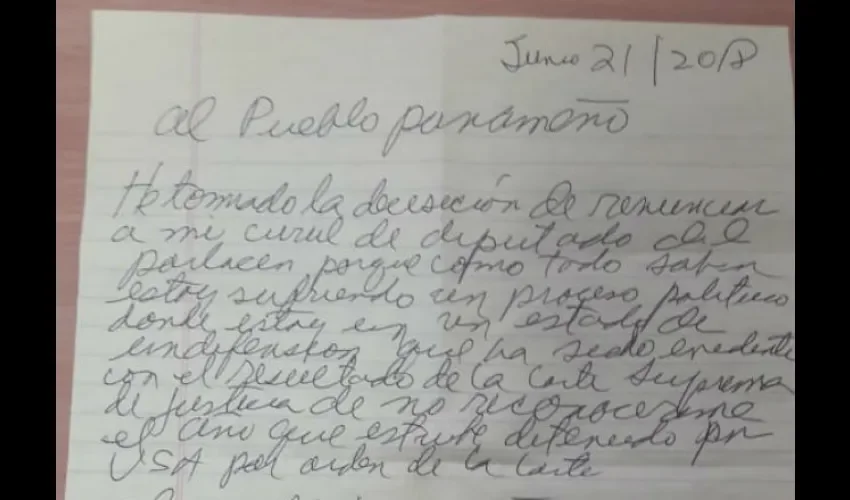 Junio 21/2018
al Pueblo panameño
He tomado la decisión de renunciar
a mi curul de diputado del
parlacen porque como todo saben
estoy sufriendo un proceso politico
donde estoy en un estado de
indefension que ha sido evidente
con el resultado de la Corte Suprema
de justicia de no reconocerme
el año que estuve detenido por
USA por orden de la Corte